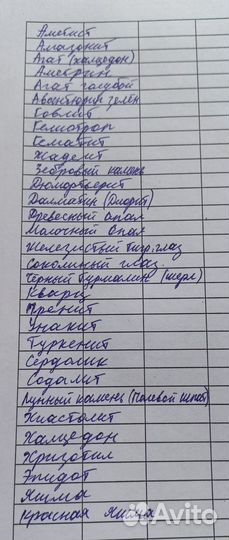 Аметист
Амазонит
Агат (халцедон)
Аметрин
Агат голубой
Авантюрин зелён
Говлит
Гелиотроп
Гематит
Жадеит
Зебровый камень
Дюмортьерит
Далматин (Диорит)
Древесный опал
Молочный Опал
Железистый тигр. глаз
Соколиный глаз.
Чёрный Турмалин (шерл)
Кварц
Пренит
Унакит
Туркенит
Сердолик
Содалит
Лунный камень (Полевой шпат)
Хиастолит
Халцедон
Хризотил
Эпидот
Яшма
Красная Яшма
Avito